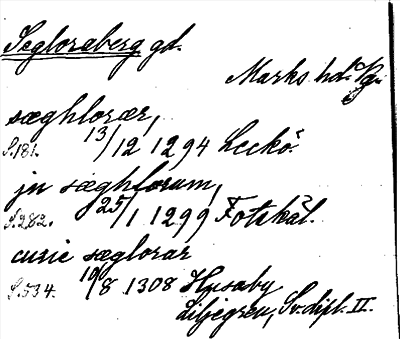 Segloraberg gd.
Marks hd. Vg.
sæghlorær,
S. 181. 13/12 1294 Leckö.
jn sæghlorum,
S. 282. 25/1 1299 Fotskäl.
curie sæglorar
S. 534. 10/8 1308 Husaby
Liljegren, Sv. dipl. II.